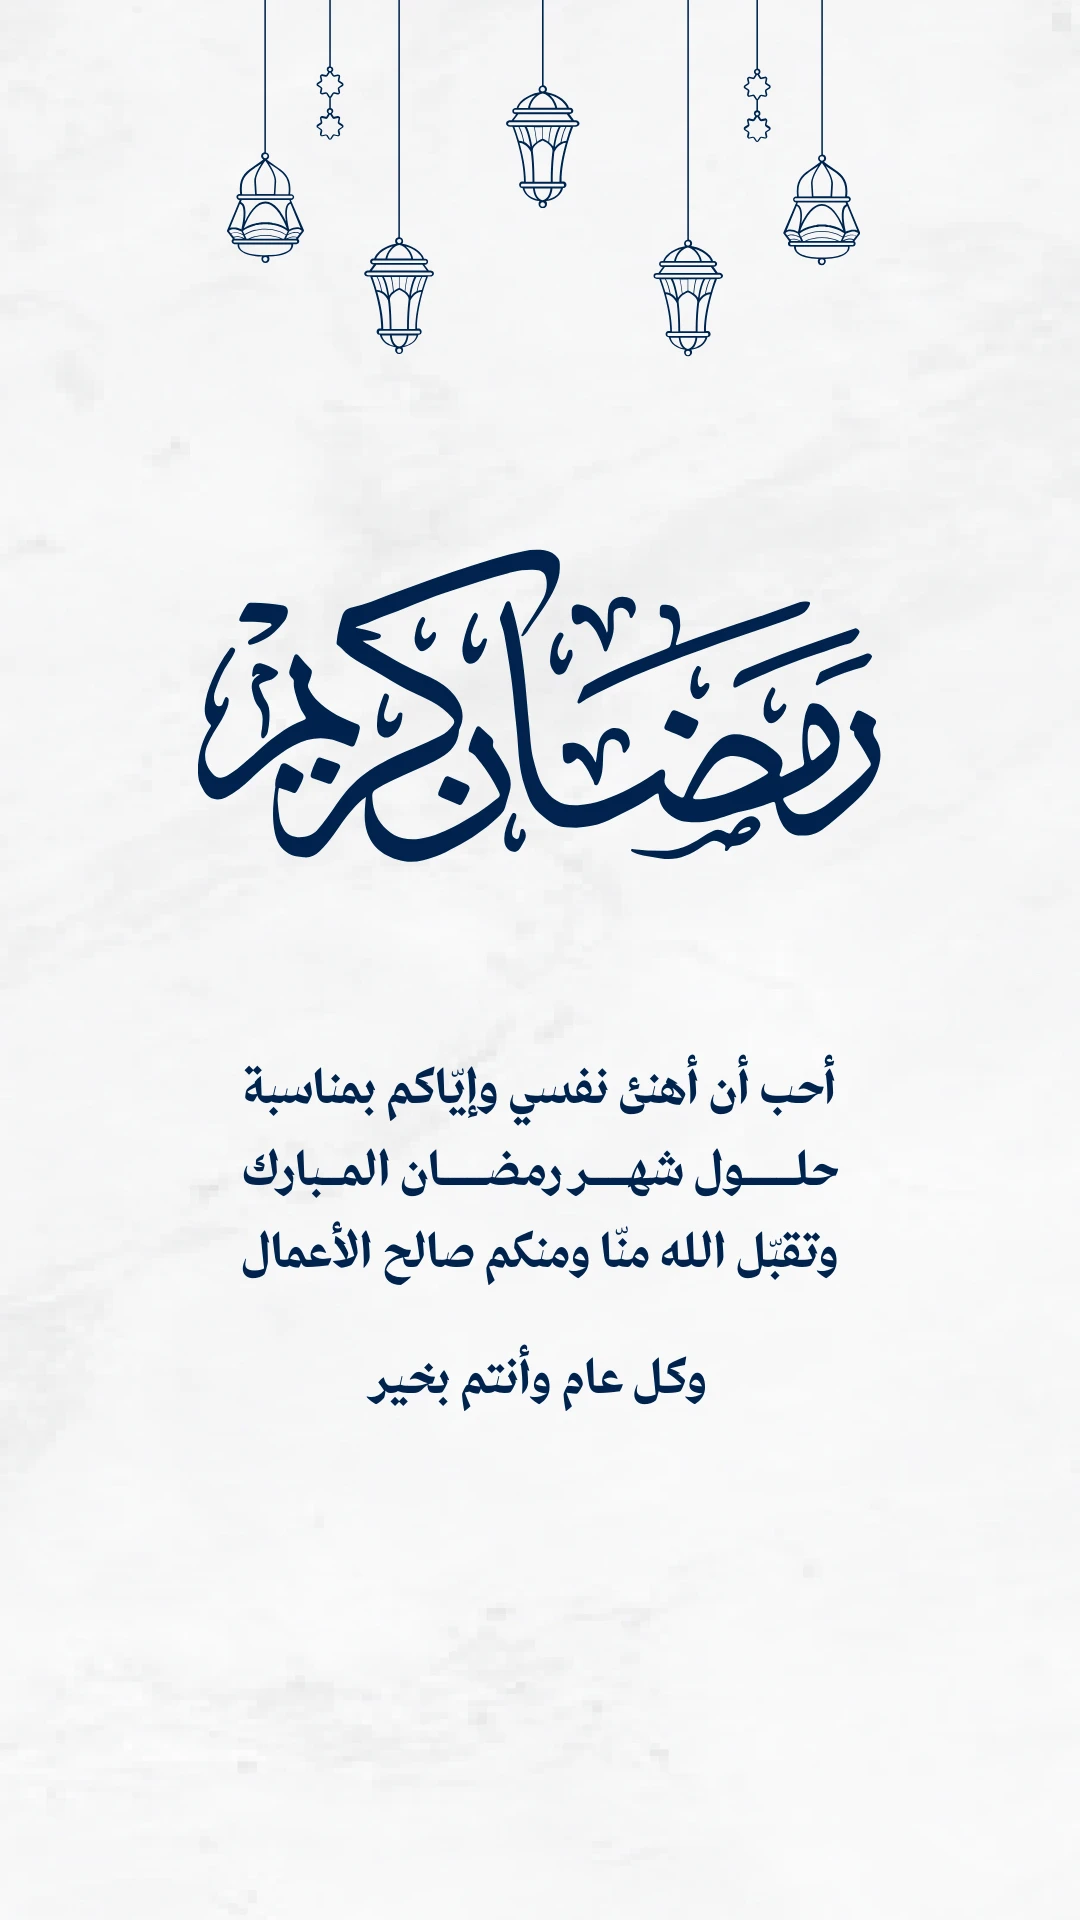 رمضان كريم
أحب أن أهنئ نفسي وإيّاكم بمناسبة
حلـــول شهـــر رمضـــان المـبارك
وتقبّل الله منّا ومنكم صالح الأعمال
وكل عام وأنتم بخير